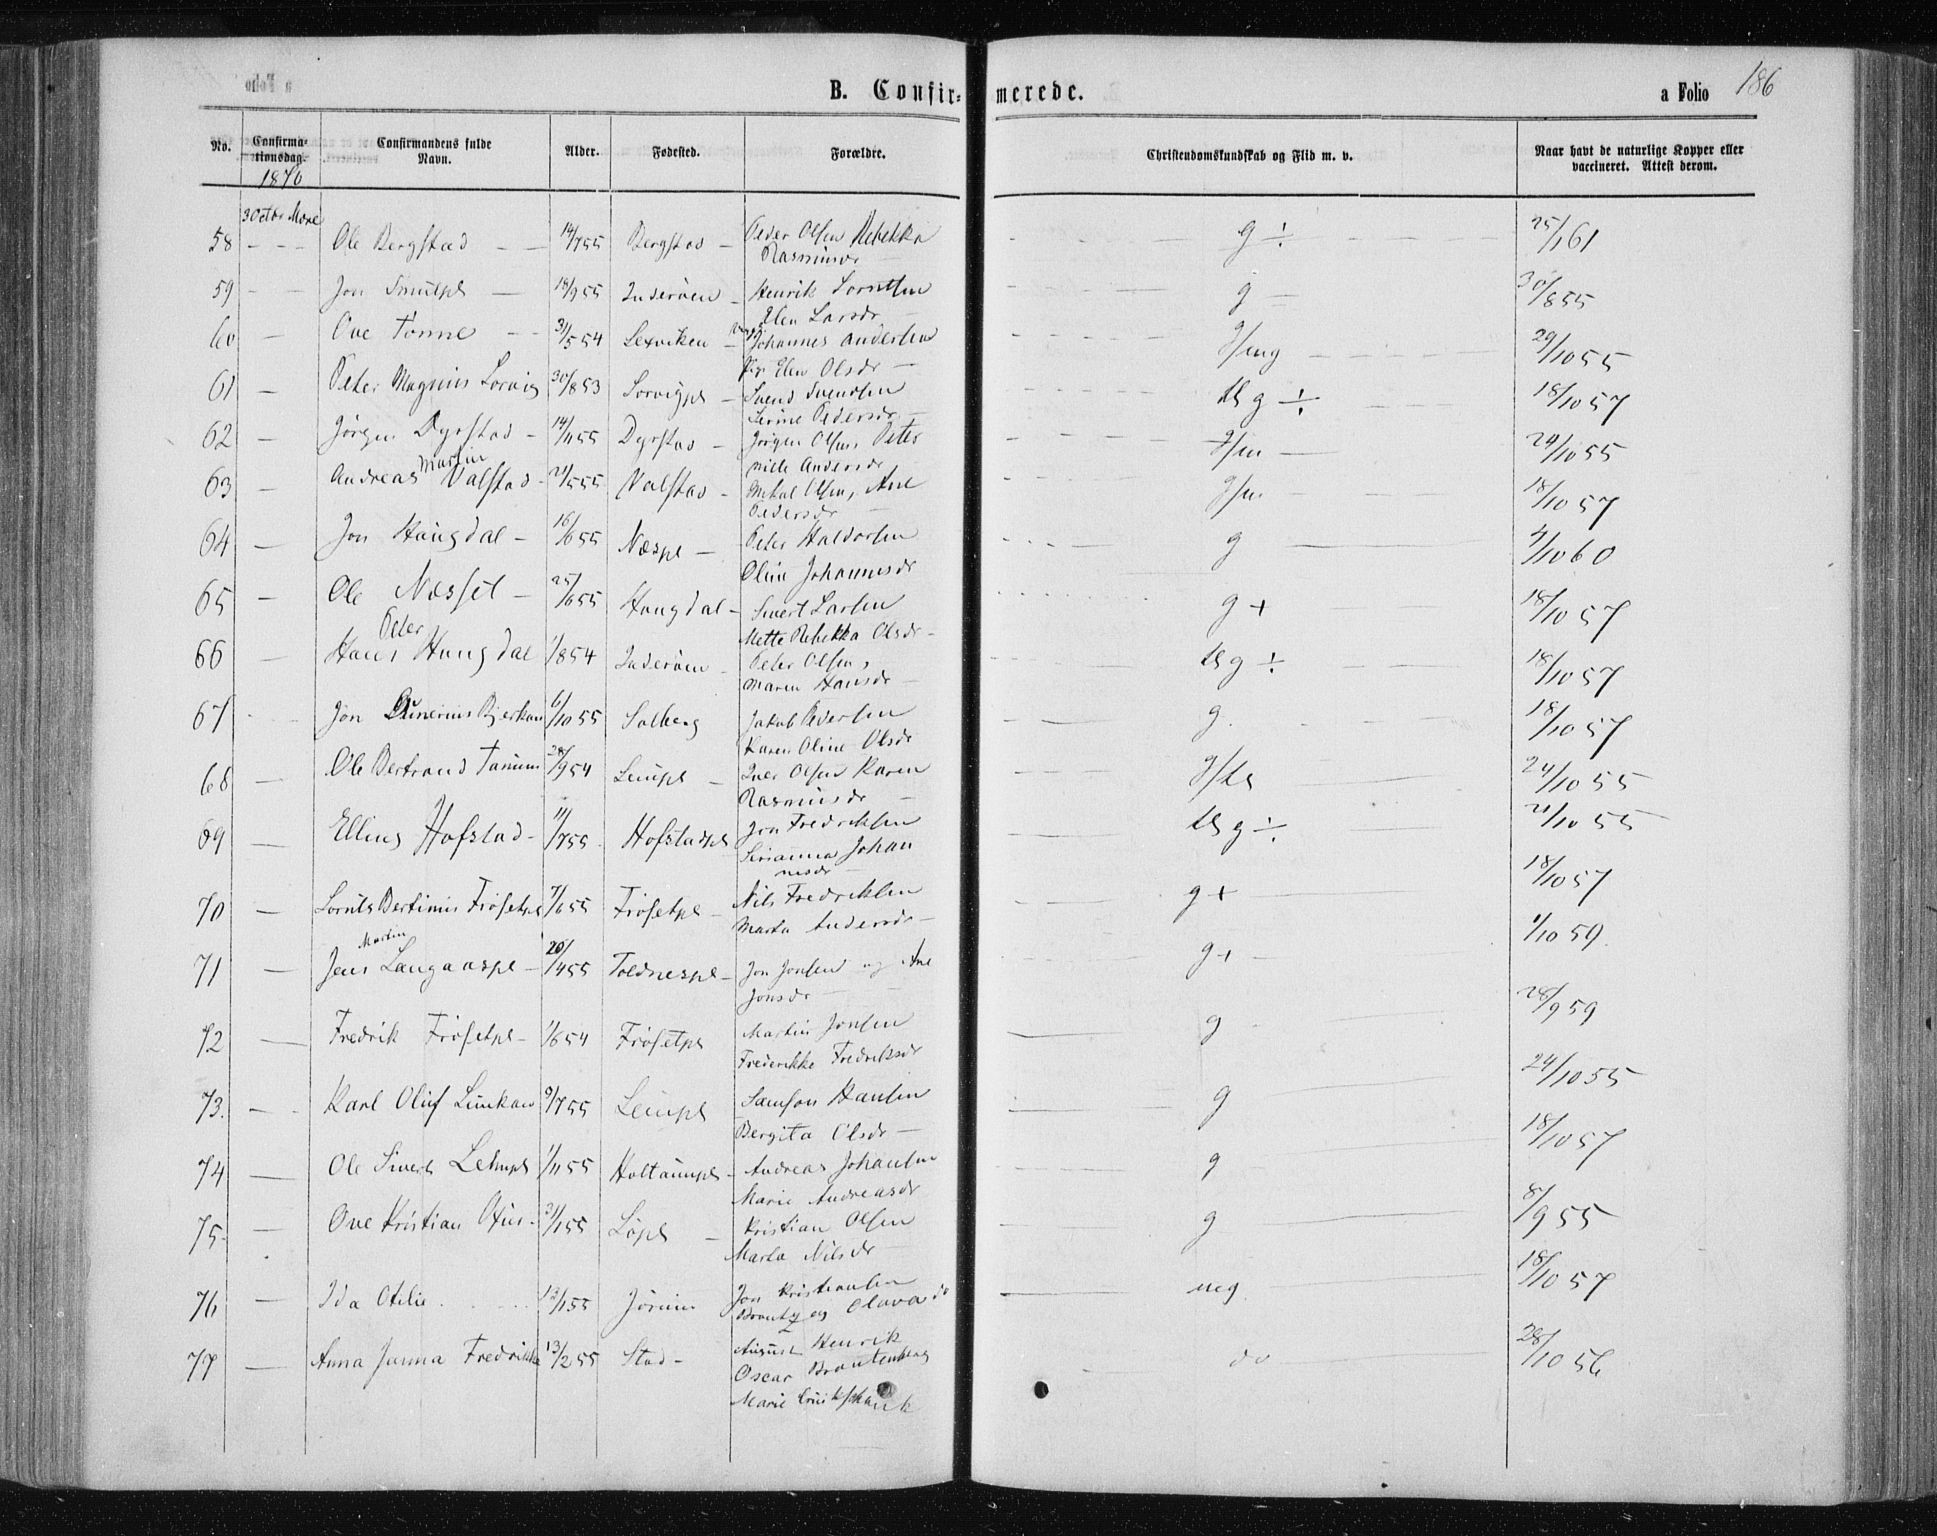 B. Confir-merede.
a Folio 186
No.
Confirma-tionsdag.
Confirmandens fulde Navn.
Alder.
Fødested.
Forældre.
Christendomskundskab og Flid m. v.
Naar havt de naturlige Kopper eller vaccineret. Attest derom.
1870
3 Octbr Mære
58 - - - Ole Bergstad - - 14/7 55 Bergstad - Peder Olsen Rebekka g ÷ 25/1 61
Rasmusdr
59 - - Jon - 18/9 55 Inderøen - Henrik g - 30/8 55
Elen Larsdr
60 - Ove Tønne - - 31/5 54 Lexviken - Johannes Andersen g/mg 29/10 55
Elen Olsdr
61 - Peter Magnus Lorvig 30/8 53 Lorvigpl - Svend Svendsen tlg ÷ 18/10 57
Serine Pedersdr
62 - Jørgen Dyrstad - 14/11 55 Dyrstad - Jørgen Olsen Peter 24/10 55
nille Andersdr
63 - Andreas Martin Valstad - 21/5 55 Valstad - Mikal Olsen, Ane 18/10 57
Pedersdr
64 - Jon Haugdal - 16/6 55 Næspl - Peter Haldorsen g 4/10 60
Oline Johannesdr
65 - Ole Næsset - 25/6 55 Haugdal - Sivert Larsen g + 18/10 57
Mette Rebekka Olsdr
66 - Hans Peter Haugdal 1/8 54 Inderøen - Peter Olsen, tlg ÷ 18/10 57
Maren Hansdr
67 Jon Bjerkan 6/10 55 Salberg Jakob Pedersen g. 18/10 57
Karen Oline Olsdr
68 - Ole Bertrand Tanum 28/9 54 Leinpl - Iver Olsen Karen g/tlg 24/10 55
Rasmusdr
69 - Elling Hofstad - 11/7 55 Hofstadpl Jon Fredriksen tlg ÷ 21/10 55
Serianna Johan
nesdr
70 - Lornts Bertinus Frøsetpl 7/6 55 Frøsetpl - Nils Fredriksen g + 18/10 57
Marta Andersdr -
71 - Jens Martin Langaaspl - 20/4 55 Tvednespl - Jon Jonsen og Ane g + 1/10 59
Jonsdr
72 - Fredrik Frøsetpl - 1/6 54 Frøsetpl Martin Jonsen g 28/9 59
Frederikke Fredriksdr
73. - Karl Oluf Linkan 9/7 55 Leinpl Samson Hansen g 24/10 55
Bergita Olsdr -
74 - Ole Sivert 1/11 55 Andreas Johansen g 18/10 57
Marie Andreasdr
75 - Ove Kristian 31/1 55 Løpl - Kristian Olsen g 8/9 55
Marta Nilsdr
76 - Ida Otelie 12/1 55 Jørum Jon Kristiansen meg 18/10 57
og Olava do
77 - Anna Janna Fredrikke 13/2 55 Stod - August Henrik do 28/10 56
Oscar Brantenberg
Marie